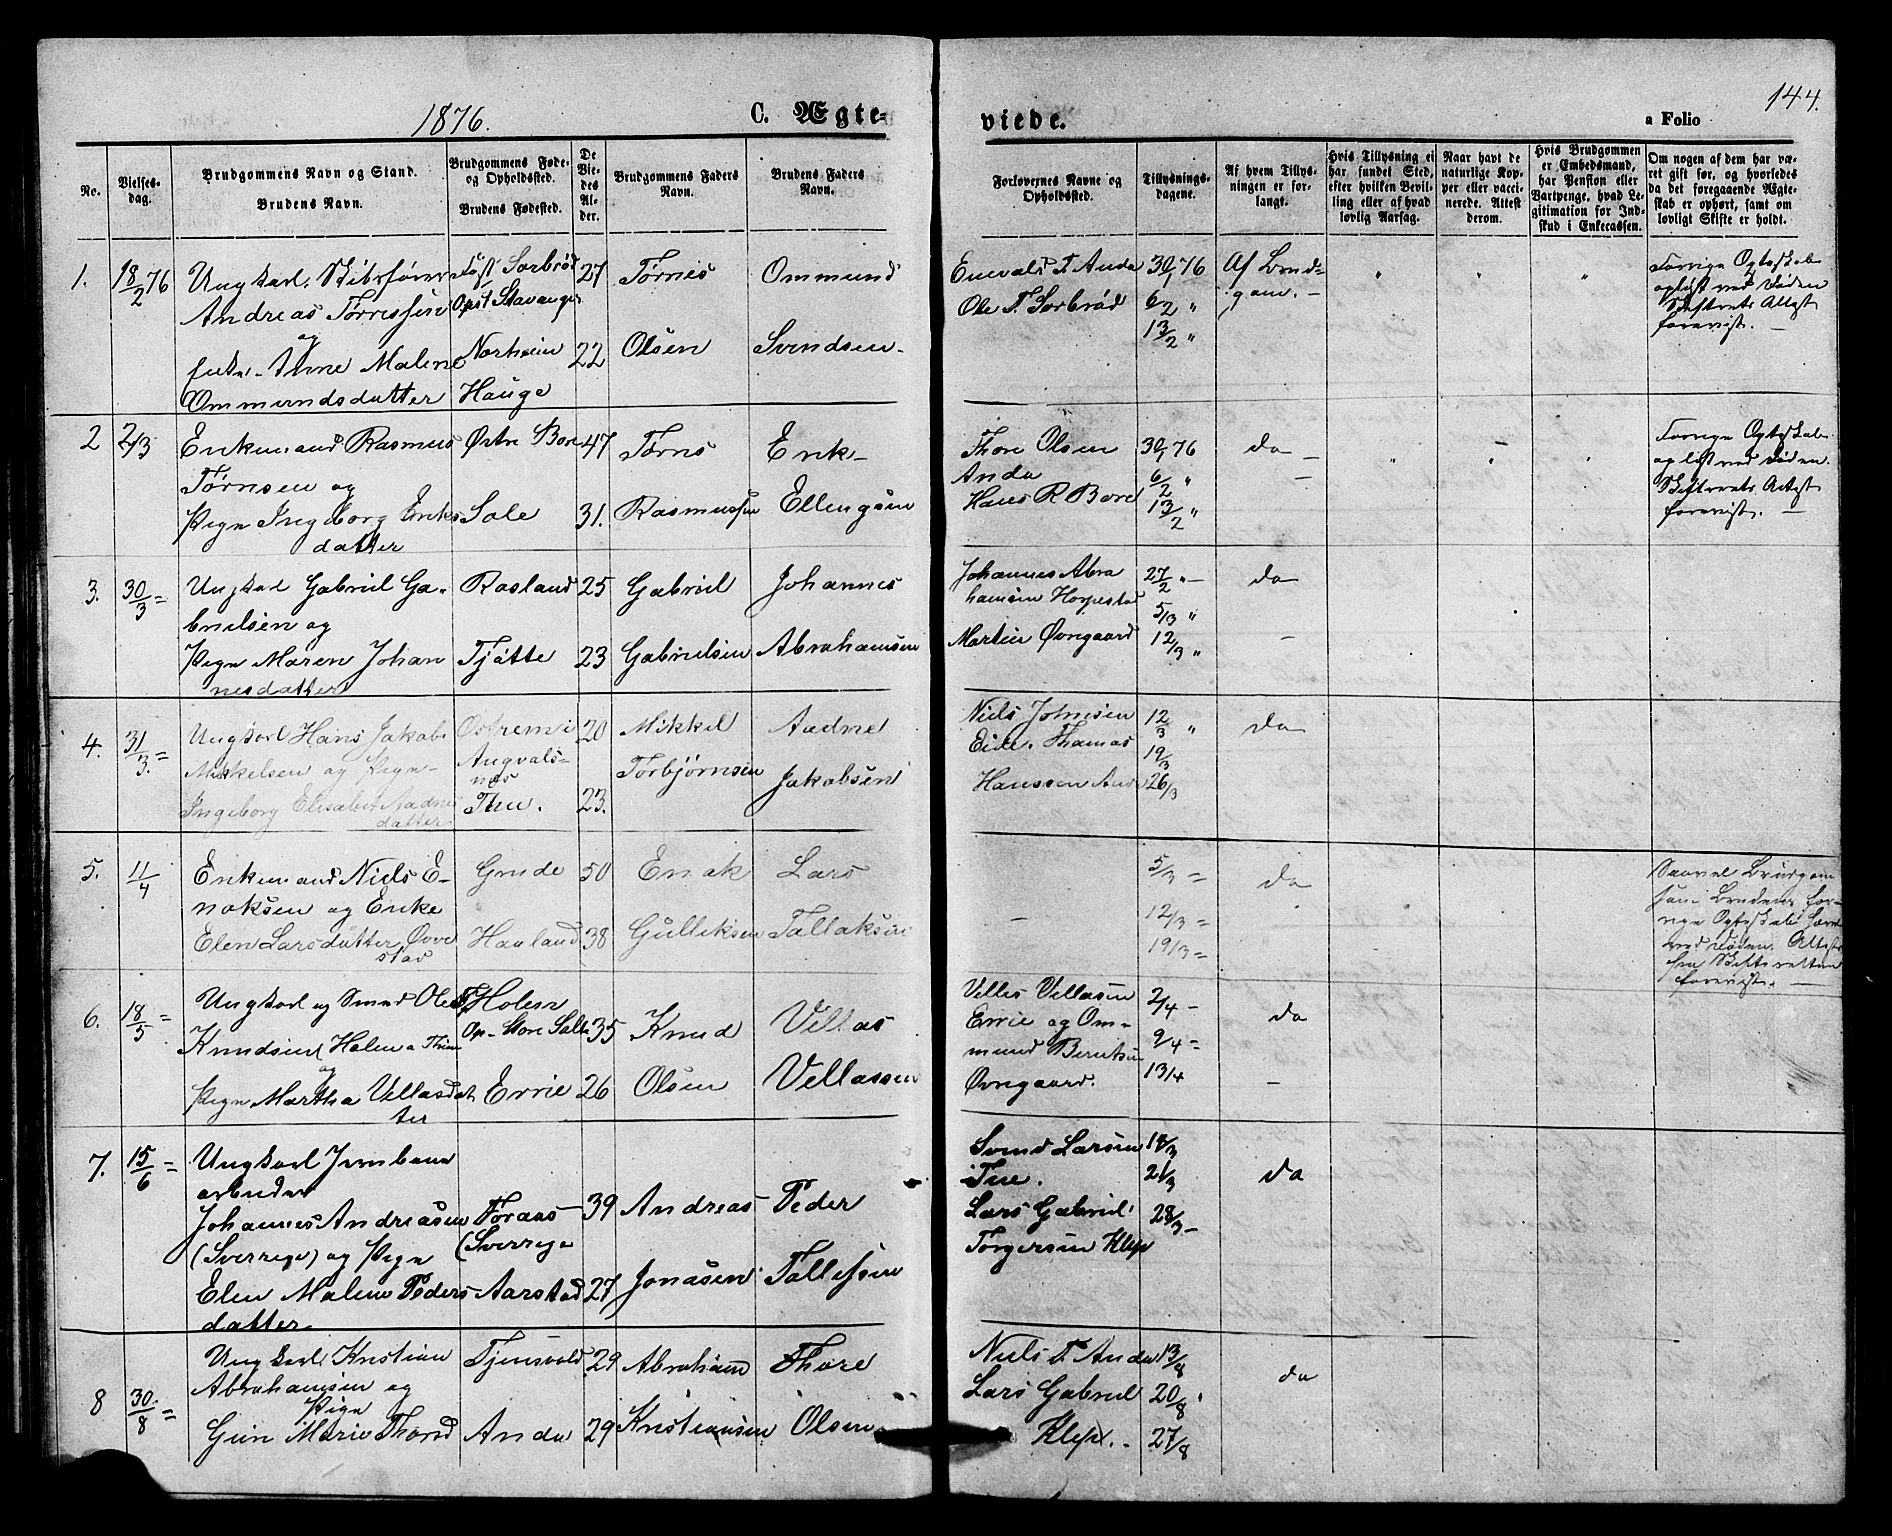 1876.
C. Ægte-
viede.
144.
a Folio
No.
Vielses-
dag.
Brudgommens Navn og Stand.
Brudens Navn.
Brudgommens Føde-
og Opholdssted.
Brudens Fødested.
De
Vie-
des
Al-
der.
Brudgommens Faders
Navn.
Brudens Faders
Navn.
Forlovernes Navne og
Opholdssted.
Tillysnings-
dagene.
Af hvem Tillys-
ningen er for-
langt.
Hvis Tillysning ei
har fundet Sted,
efter hvilken Bevil-
ling eller af hvad
lovlig Aarsag.
Naar havt de
naturlige Kop-
per eller vacci-
nerede. Attest
derom.
Hvis Brudgommen
er Embedsmand,
har Pension eller
Vartpenge, hvad Le-
gitimation for Ind-
skud i Enkecassen.
Om nogen af dem har væ-
ret gift før, og hvorledes
da det foregaaende Ægte-
skab er ophørt, samt om
lovligt Skifte er holdt.
1. 18/2 76
Ungkarl, Skibsfører
Andreas Tørressen
og
Anne Malene
Ommundsdatter
Føst Sorbrød
Opst Stavanger
Norheim
Hauge
27
22
Tørris
Olsen
Ommund
Svendsen
Enevald T. Anda
Ole T. Sorbrød
30/1 76
6/2 "
13/2 "
Af Brud-
gom. -
Forrige Ægteskab
opløst ved Døden
Skifterets Attest
forevist. -
2 2/3
Enkemand Rasmus
Tørrisen og
Pige Ingeborg Eriks
datter
Østre Bore
Sole
47
31.
Tørris
Rasmussen
Erik
Ellingsen
Thore Olsen
Anda
Hans R Bore
30/1 76
6/2 "
13/2 "
da -
Forrige Ægteskab
opløst ved Døden.
Skifterets Attest
forevist. -
3. 30/3 =
Ungkarl Gabriel Ga-
brielsen og
Pige Maren Johan
nesdatter
Rasland
Tjøtte
25
23
Gabriel
Gabrielsen
Johannes
Abrahamsen
Johannes Abra
hamsen Horpestad
Martin Øvregaard
27/2 " -
5/3 "
12/3 "
da
4. 31/3. =
Ungkarl Hans Jakob
Mikkelsen og Pige
Ingeborg Elisabet Aadnes
datter
Angvals-
nes
Thu.
20
23.
Mikkel
Torbjørnsen
Aadne
Jakobsen
Niels Johnsen
Eide. Thomas
Hanssen Anda
12/3 "
19/3
26/3
da
5. 11/4
Enkemand Niels E-
noksen og Enke
Elen Larsdatter Øvre
stad
Grude
Hauland
50
38
Enok
Gulliksen
Lars
Tallaksen
5/3 =
12/3 =
19/3 =
da
Saavel Brudgom
som Brudens for-
rige Ægteskab hævet
ved Døden. Attest
fra Skifteretten
forevist. -
6. 18/5 =
Ungkarl og Smed Ole
Knudsen Holen
og
Pige Martha Villasdat
ter
Holen
Op- Store Salte
Errie
35
26
Knud
Olsen
Villas
Villassen
Villas Villasen
Errie og Om-
mund Berntsen
Øvregaard.
2/4 -
9/4 =
13/4
da
7. 15/6 =
Ungkarl Jernbane
arbeider
Johannes Andreasen
(Sverrige) og Pige
Elen Malene Peders
datter
Foraas
(Sverrige
Aarstad
39
27
Andreas
Jonasen
Peder
Tollefsen
Svend Larsen
Tue.
Lars Gabriel
Torgersen Klep
18/3
21/3
28/3 -
da
8 30/8 =
Ungkarl Kristian
Abrahamsen og
Pige
Marie Thorsd
Tjensvold
Anda
29
29
Abraham
Kristiansen
Thore
Olsen
Niels T. Anda
Lars Gabriel
Klep.
13/8
20/8
27/8
da